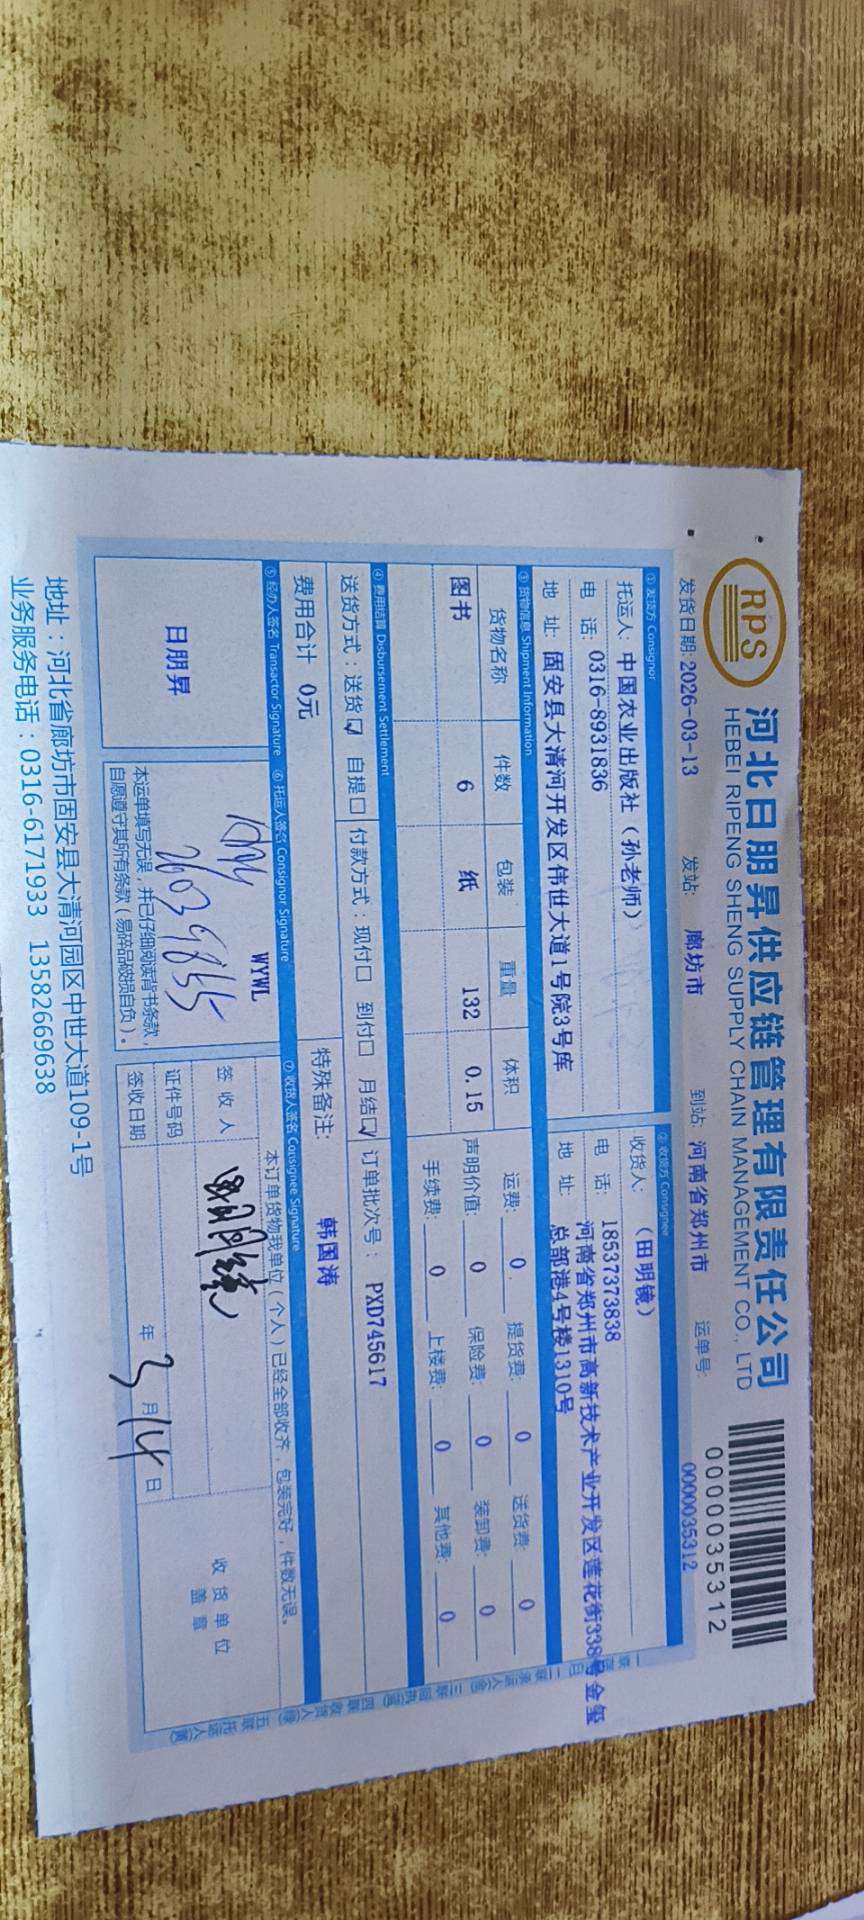 RPS
河北日朋昇供应链管理有限责任公司
HEBEI RIPENG SHENG SUPPLY CHAIN MANAGEMENT CO., LTD
0000035312
发货日期: 2026-03-13 发站: 廊坊市 到站: 河南省郑州市 运单号: 0000035312
① 发货方 Consignor
托运人: 中国农业出版社(孙老师)
电 话: 0316-8931836
地 址: 固安县大清河开发区伟世大道1号院3号库
② 收货方 Consignee
收货人: (田明镜)
电 话: 18537373838
地 址: 河南省郑州市高新技术产业开发区莲花街338号金玺
总部港4号楼1310号
③ 货物信息 Shipment Information
货物名称 件数 包装 重量 体积
图书 6 纸 132 0.15
运费: 0 提货费: 0 送货费: 0
声明价值: 0 保险费: 0 装卸费: 0
手续费: 0 上楼费: 0 其他费: 0
④ 费用结算 Disbursement Settlement
送货方式:送货☑ 自提□ 付款方式:现付□ 到付□ 月结☑ 订单批次号: PXD745617
费用合计 0元 特殊备注: 韩国涛
⑤ 经办人签名 Transactor Signature ⑥ 托运人签名 Consignor Signature ⑦ 收货人签名 Consignee Signature
日朋昇
WYWL
本运单填写无误,并已仔细阅读背书条款,
自愿遵守其所有条款(易碎品破损自负)。
本订单货物我单位(个人)已经全部收齐,包装完好,件数无误。
签 收 人 田明镜
证件号码
签收日期 年 3 月 14 日
收 货 单 位
盖 章
地址:河北省廊坊市固安县大清河园区中世大道109-1号
业务服务电话:0316-6171933 13582669638